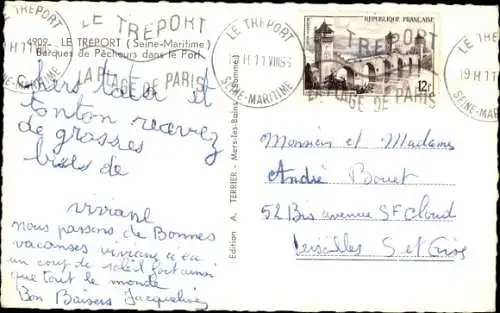 4909. LE TREPORT (Seine-Maritime)
Barques de Pêcheurs dans le Port
LE TREPORT
LA PLAGE DE PARIS
LE TREPORT
SEINE-MARITIME
RÉPUBLIQUE FRANÇAISE
12f
LE TREPORT
LA PLAGE DE PARIS
LE TREPORT
19 H 11
SEINE-MARITIME
chers tata et
tonton recevez
de grosses
bises de
viviane
nous passons de Bonnes
vacanses viviane a eu
un coup de soleil fort ainsi
que tout le monde
Bon Baisers Jacqueline
Edition A. TERRIER - Mers-les-Bains (Somme)
Monsieur et Madame
André Bouet
52 Bis avenue St Cloud
Versailles S et Oise